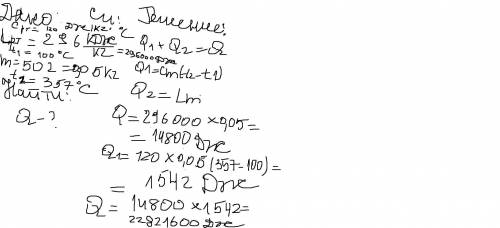 Дано: СИ: Решение:
Cрт = 120 Дж/кг·°C
Lрт = 296 кДж/кг = 296000 Дж
t1 = 100°C
m = 502 = 0,05 кг
t2 = 357°C
Найти:
Q - ?
Q1 + Q2 = Q
Q1 = cm(t2 - t1)
Q2 = Lm
Q = 296000 × 0,05 =
= 14800 Дж
Q1 = 120 × 0,05 (357 - 100) =
= 1542 Дж
Q = 14800 × 1542 =
22821600 Дж